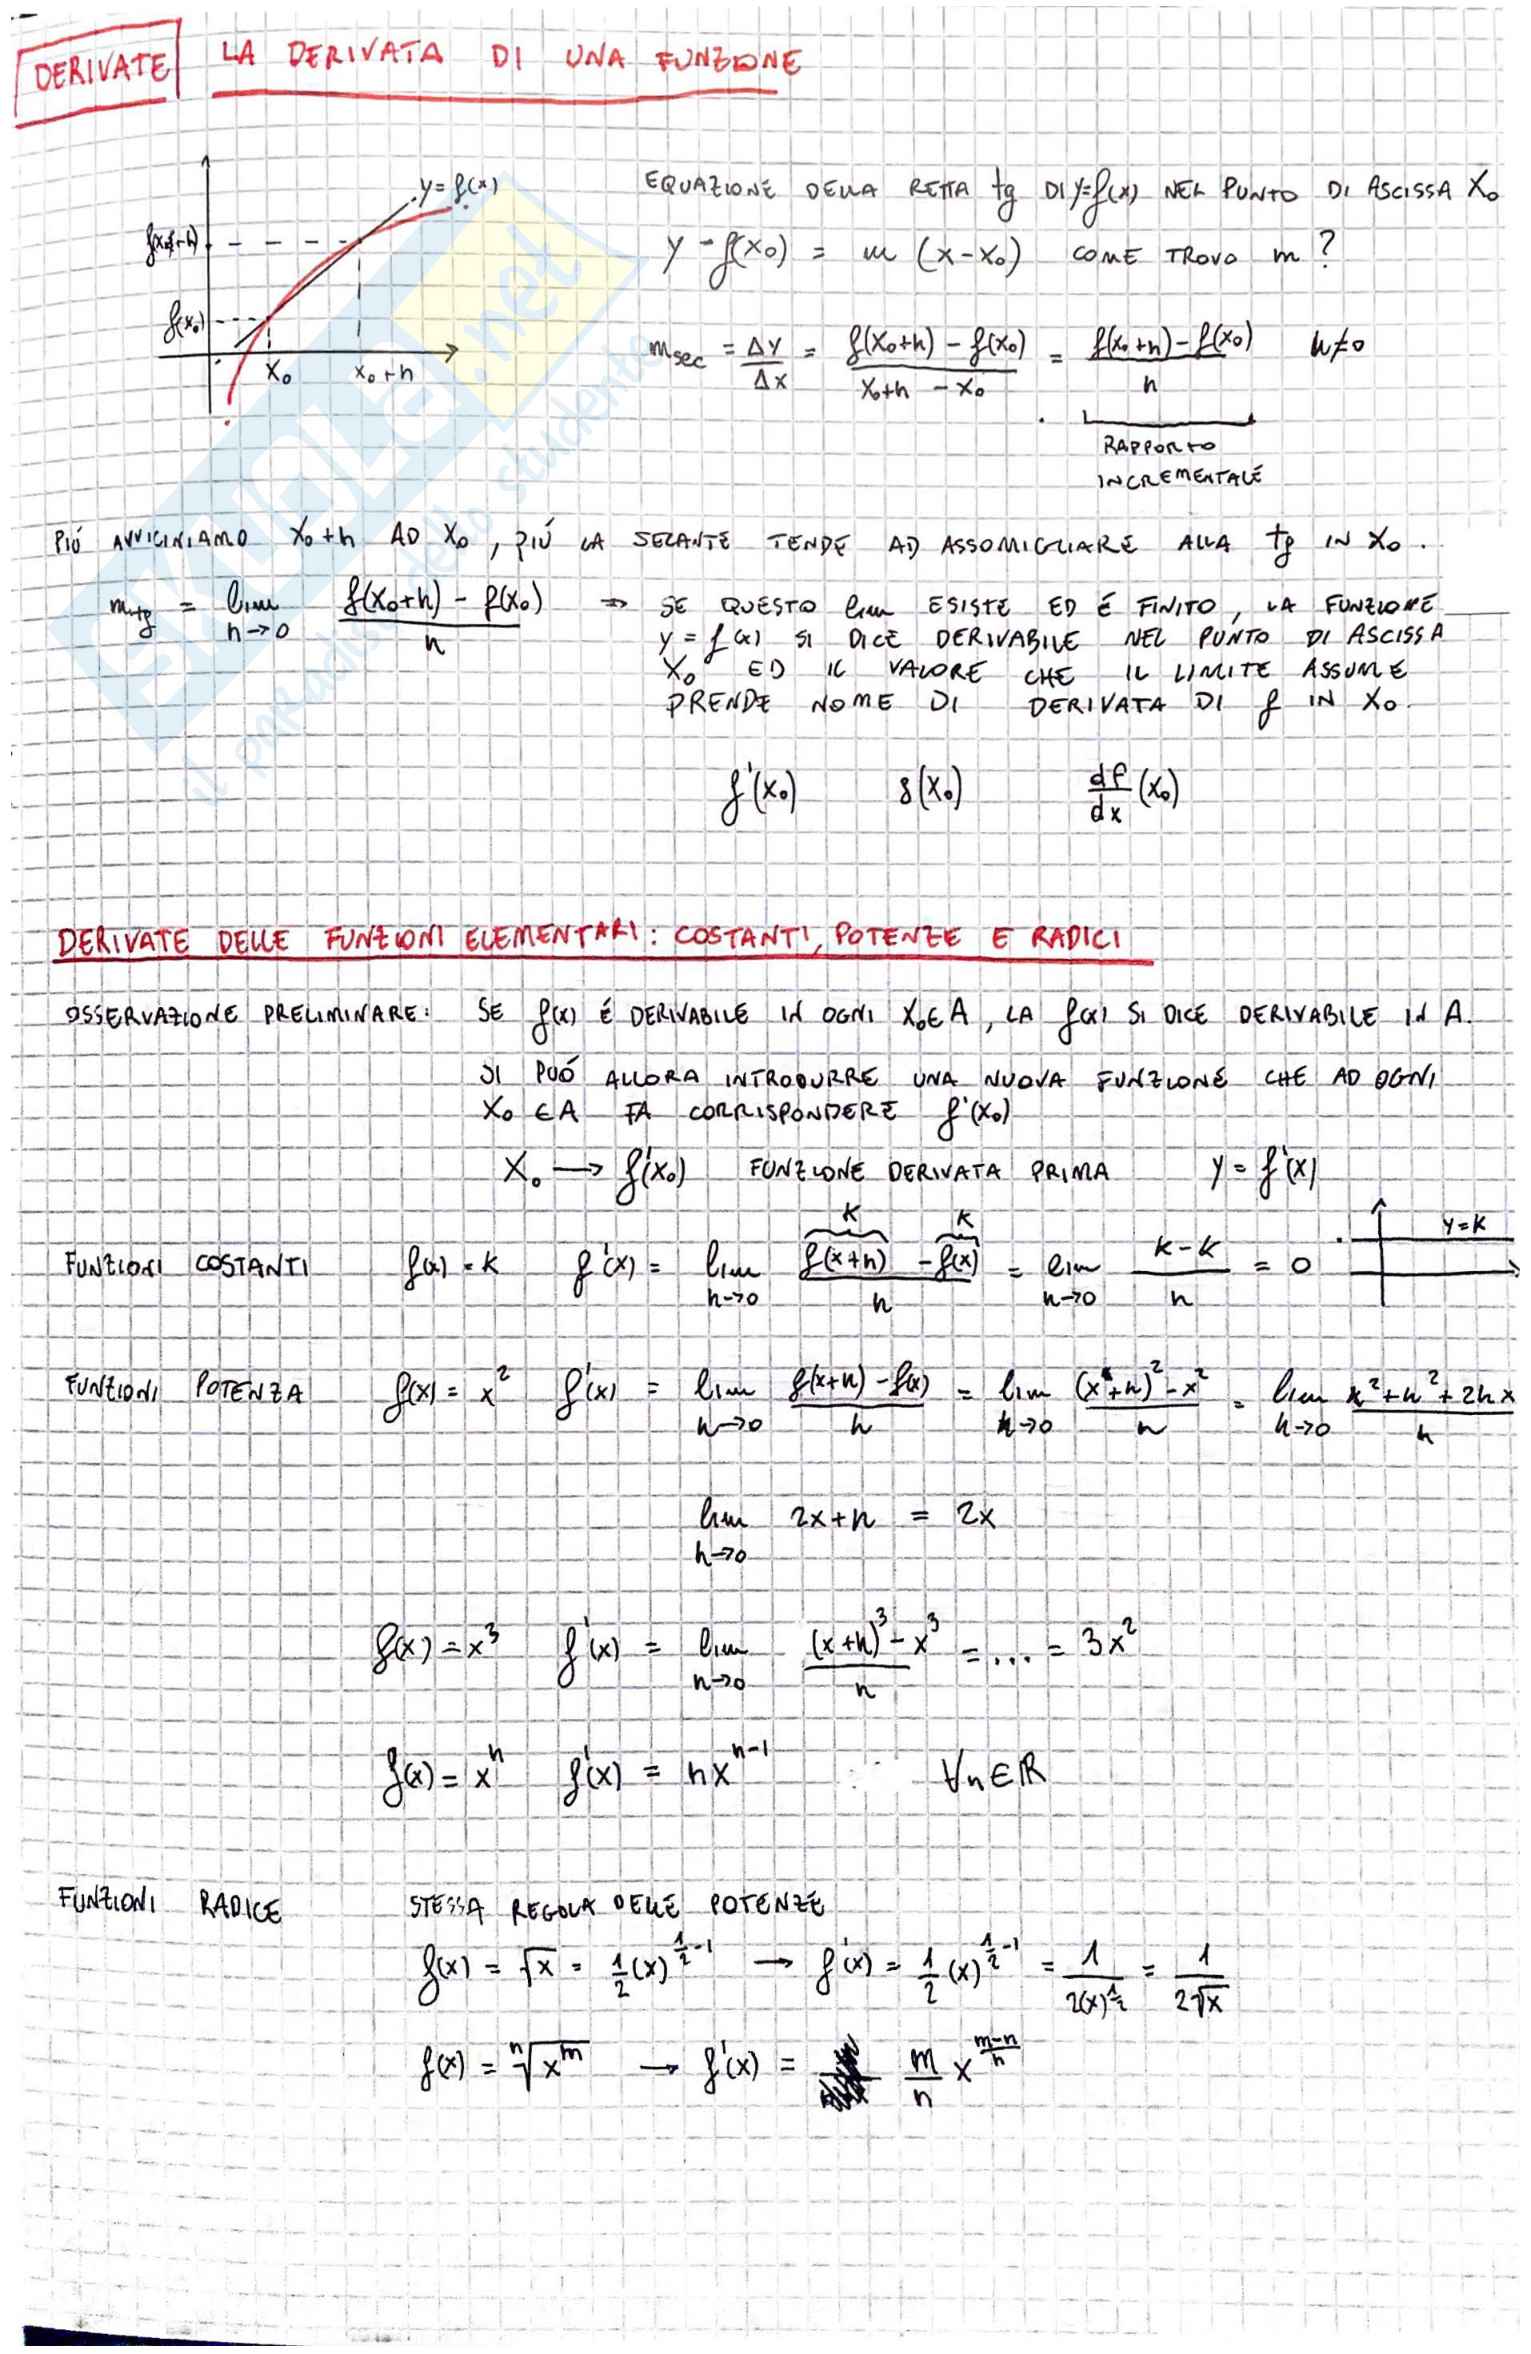 DERIVATE LA DERIVATA DI UNA FUNZIONE
y = f(x)
f(x₀+h)
f(x₀)
x₀ x₀+h
EQUAZIONE DELLA RETTA tg DI y=f(x) NEL PUNTO DI ASCISSA X₀
y - f(x₀) = m (x-x₀) COME TROVO m ?
m_sec = Δy/Δx = (f(x₀+h) - f(x₀))/(x₀+h - x₀) = (f(x₀+h) - f(x₀))/h h≠0
RAPPORTO
INCREMENTALE
PIÚ AVVICINIAMO X₀+h AD X₀, PIÚ LA SECANTE TENDE AD ASSOMIGLIARE ALLA tg IN X₀.
m_tg = lim h→0 (f(x₀+h) - f(x₀))/h ⇒ SE QUESTO lim ESISTE ED É FINITO, LA FUNZIONE
y = f(x) SI DICE DERIVABILE NEL PUNTO DI ASCISSA
X₀ ED IL VALORE CHE IL LIMITE ASSUME
PRENDE NOME DI DERIVATA DI f IN X₀.
f'(x₀) δ(x₀) df/dx (x₀)
DERIVATE DELLE FUNZIONI ELEMENTARI: COSTANTI, POTENZE E RADICI
OSSERVAZIONE PRELIMINARE: SE f(x) É DERIVABILE IN OGNI X₀∈A, LA f(x) SI DICE DERIVABILE IN A.
SI PUÓ ALLORA INTRODURRE UNA NUOVA FUNZIONE CHE AD OGNI
X₀ ∈ A FA CORRISPONDERE f'(x₀)
X₀ → f'(x₀) FUNZIONE DERIVATA PRIMA y = f'(x)
K K y=K
FUNZIONI COSTANTI f(x) = K f'(x) = lim h→0 (f(x+h) - f(x))/h = lim h→0 (K-K)/h = 0
FUNZIONI POTENZA f(x) = x² f'(x) = lim h→0 (f(x+h) - f(x))/h = lim h→0 ((x+h)² - x²)/h = lim h→0 (x²+h²+2hx)/h
lim h→0 2x+h = 2x
f(x) = x³ f'(x) = lim h→0 ((x+h)³ - x³)/h = .... = 3x²
f(x) = xⁿ f'(x) = nxⁿ⁻¹ ∀n∈ℝ
FUNZIONI RADICE STESSA REGOLA DELLE POTENZE
f(x) = √x = 1/2 (x)^(1/2 -1) → f'(x) = 1/2 (x)^(1/2 -1) = 1/(2(x)^(1/2)) = 1/(2√x)
f(x) = ⁿ√(x^m) → f'(x) = m/n x^((m-n)/n)
SKUOLA.net
il paradiso dello studente